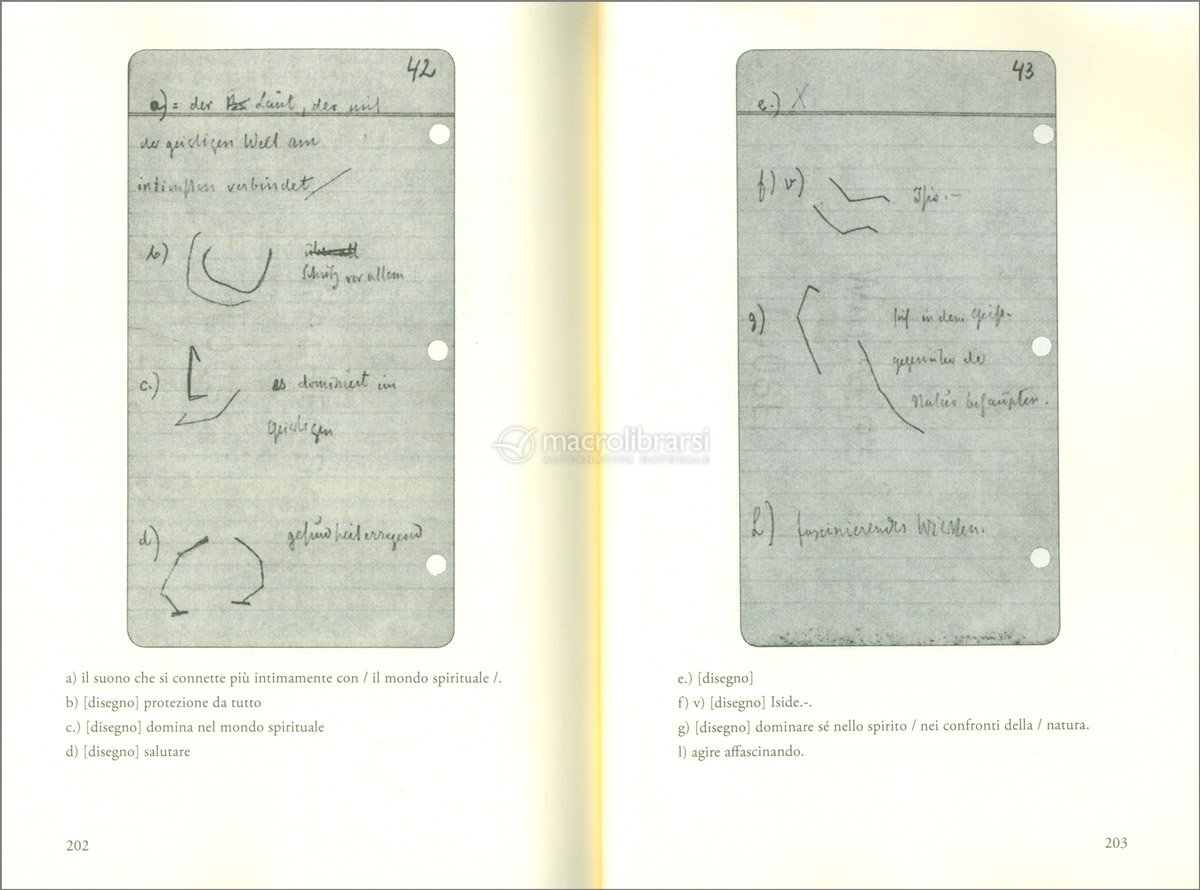 42
a) = der Laut, der mit
der geistigen Welt am
intimsten verbindet /
b) überall
Schutz vor allem
c.) es dominiert im
geistigen
d) gesundheiterregend
a) il suono che si connette più intimamente con / il mondo spirituale /.
b) [disegno] protezione da tutto
c.) [disegno] domina nel mondo spirituale
d) [disegno] salutare
202
43
e.) X
f) v) Isis.-
g) sich in dem Geist
gegenüber der
Natur behaupten.
l) fascinierendes Wirken.
e.) [disegno]
f) v) [disegno] Iside.-.
g) [disegno] dominare sé nello spirito / nei confronti della / natura.
l) agire affascinando.
203
macrolibrarsi
ALTERNATIVA NATURALE